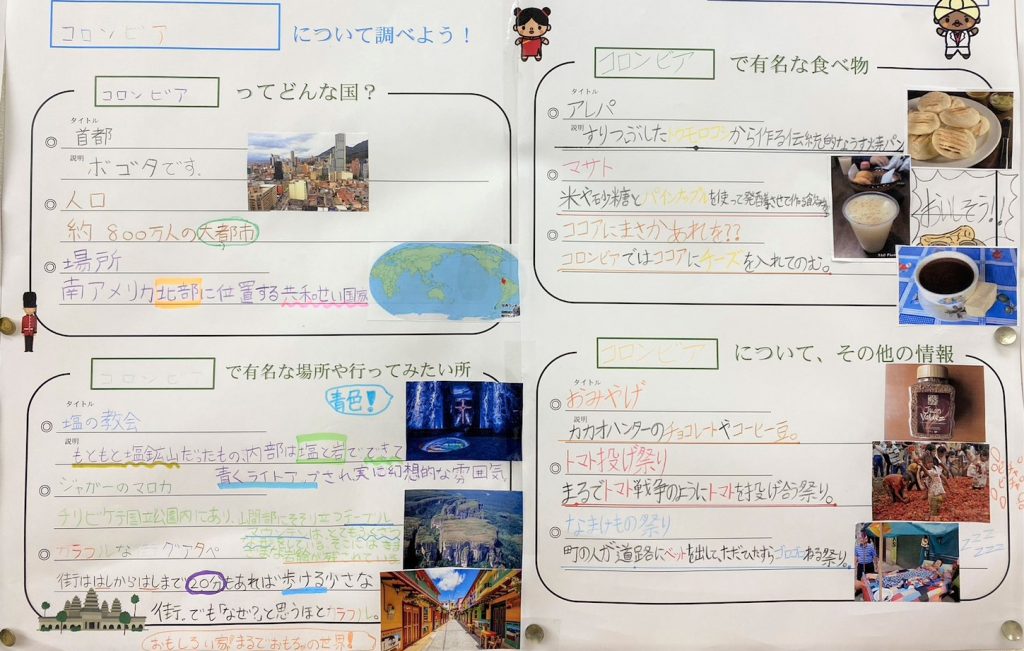 コロンビア について調べよう！
コロンビア ってどんな国？
タイトル
◎ 首都
説明
ボゴタです。
◎ 人口
約 800万人の大都市
◎ 場所
南アメリカ北部に位置する共和せい国家
コロンビア で有名な場所や行ってみたい所
タイトル
◎ 塩の教会
青色！
説明
もともと塩鉱山だったもの。内部は塩と岩でできて
青くライトアップされ、実に幻想的な雰囲気。
◎ ジャガーのマロカ
チリビケテ国立公園内にあり、山間部にそそり立つテーブル
マウンテンは
◎ カラフルなグアタペ
街ははしからはしまで20分もあれば歩ける小さな
街。でも「なぜ？」と思うほどカラフル。
おもしろい家！まるでおもちゃの世界！
コロンビア で有名な食べ物
タイトル
◎ アレパ
説明
すりつぶしたトウモロコシから作る伝統的なうす焼パン
◎ マサト
米や砂糖とパイナップルを使って発酵させて作る
おいしそう!!
◎ ココアにまさかあれを??
コロンビアではココアにチーズを入れてのむ。
コロンビア について、その他の情報
タイトル
◎ おみやげ
説明
カカオハンターのチョコレートやコーヒー豆。
◎ トマト投げ祭り
まるでトマト戦争のようにトマトを投げ合う祭り。
◎ なまけもの祭り
町の人が道路にベットを出して、ただひたすらゴロゴロねる祭り。
zzz
zzz